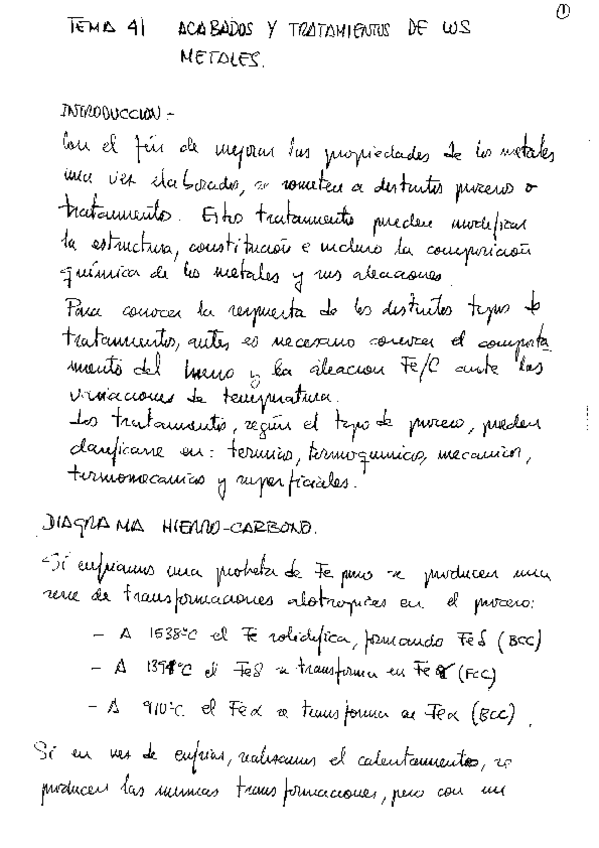 1
TEMA 41 ACABADOS Y TRATAMIENTOS DE LOS
METALES.
INTRODUCCION -
Con el fin de mejorar las propiedades de los metales
una vez elaborados, se someten a distintos procesos o
tratamientos. Estos tratamientos pueden modificar
la estructura, constitución e incluso la composición
química de los metales y sus aleaciones.
Para conocer la respuesta de los distintos tipos de
tratamientos, antes es necesario conocer el comporta
miento del hierro y la aleacion Fe/C ante las
variaciones de temperatura.
Los tratamientos, según el tipo de proceso, pueden
clasificarse en: termicos, termoquimicos, mecanicos,
termomecanicos y superficiales.
DIAGRAMA HIERRO-CARBONO.
Si enfriamos una probeta de Fe puro se producen una
serie de transformaciones alotropicas en el proceso:
- A 1538ºC el Fe solidifica, formando Feδ (BCC)
- A 1394ºC el Feδ se transforma en Fe γ (FCC)
- A 910ºC el Feα se transforma en Feα (BCC).
Si en vez de enfriar, realizamos el calentamiento, se
producen las mismas transformaciones, pero con un